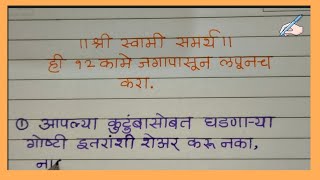 ॥ श्री स्वामी समर्थ ॥
ही १२ कामे जगापासून लपूनच
करा.
① आपल्या कुटुंबासोबत घडणाऱ्या
गोष्टी इतरांशी शेअर करू नका,
ना